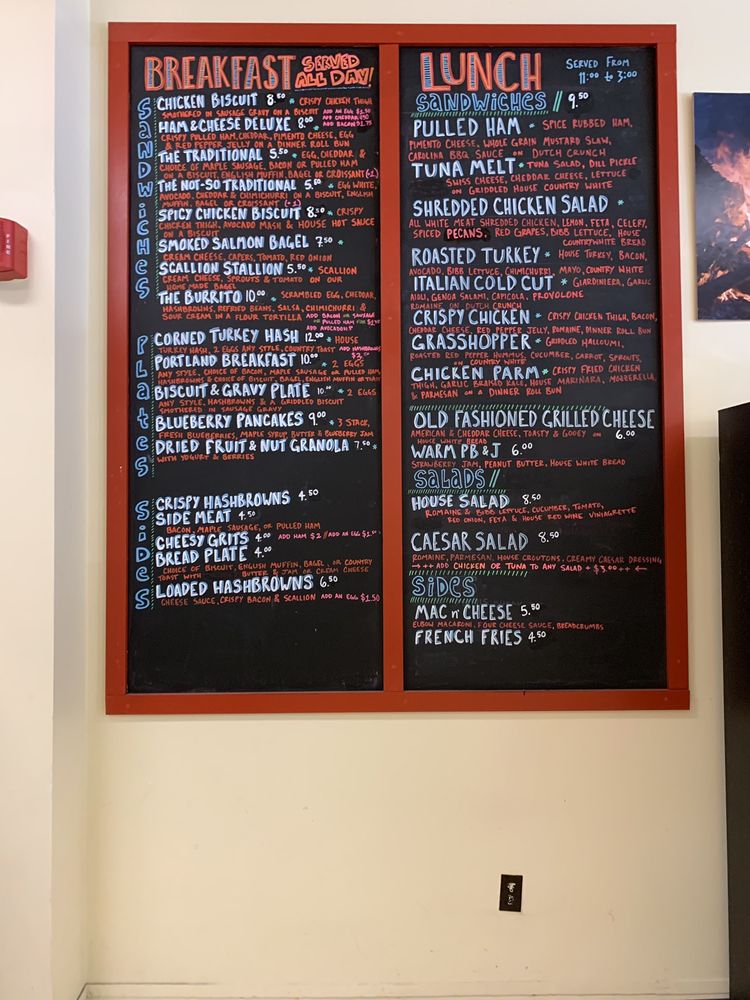 BREAKFAST SERVED ALL DAY!
SANDWICHES
CHICKEN BISCUIT 8.50 * CRISPY CHICKEN THIGH
SMOTHERED IN SAUSAGE GRAVY ON A BISCUIT ADD AN EGG $1.50
HAM & CHEESE DELUXE 8.00 * ADD CHEDDAR
ADD BACON
CRISPY PULLED HAM, CHEDDAR, PIMENTO CHEESE, EGG
& RED PEPPER JELLY ON A DINNER ROLL BUN
THE TRADITIONAL 5.50 * EGG, CHEDDAR &
CHOICE OF MAPLE SAUSAGE, BACON OR PULLED HAM
ON A BISCUIT, ENGLISH MUFFIN, BAGEL OR CROISSANT (+1)
THE NOT-SO TRADITIONAL 5.50 * EGG WHITE,
AVOCADO, CHEDDAR & CHIMICHURRI ON A BISCUIT, ENGLISH
MUFFIN, BAGEL OR CROISSANT (+1)
SPICY CHICKEN BISCUIT 8.50 * CRISPY
CHICKEN THIGH, AVOCADO MASH & HOUSE HOT SAUCE
ON A BISCUIT
SMOKED SALMON BAGEL 7.50 *
CREAM CHEESE, CAPERS, TOMATO, RED ONION
SCALLION STALLION 5.50 * SCALLION
CREAM CHEESE, SPROUTS & TOMATO ON OUR
HOME MADE BAGEL
THE BURRITO 10.00 * SCRAMBLED EGG, CHEDDAR,
HASHBROWNS, REFRIED BEANS, SALSA, CHIMICHURRI &
SOUR CREAM IN A FLOUR TORTILLA ADD BACON OR SAUSAGE
OR PULLED HAM FOR
ADD AVOCADO
PLATES
CORNED TURKEY HASH 12.00 * HOUSE
TURKEY HASH, 2 EGGS ANY STYLE, COUNTRY TOAST ADD HASHBROWNS
PORTLAND BREAKFAST 10.00 * 2 EGGS
ANY STYLE, CHOICE OF BACON, MAPLE SAUSAGE OR PULLED HAM,
HASHBROWNS & CHOICE OF BISCUIT, BAGEL, ENGLISH MUFFIN OR TOAST
BISCUIT & GRAVY PLATE 10.00 * 2 EGGS
ANY STYLE, HASHBROWNS & A GRIDDLED BISCUIT
SMOTHERED IN SAUSAGE GRAVY
BLUEBERRY PANCAKES 9.00 * 3 STACK,
FRESH BLUEBERRIES, MAPLE SYRUP, BUTTER & BLUEBERRY JAM
DRIED FRUIT & NUT GRANOLA 7.50 *
WITH YOGURT & BERRIES
SIDES
CRISPY HASHBROWNS 4.50
SIDE MEAT 4.50
BACON, MAPLE SAUSAGE, OR PULLED HAM
CHEESY GRITS 4.00 ADD HAM $2 // ADD AN EGG $1.50
BREAD PLATE 4.00
CHOICE OF BISCUIT, ENGLISH MUFFIN, BAGEL, OR COUNTRY
TOAST WITH BUTTER & JAM OR CREAM CHEESE
LOADED HASHBROWNS 6.50
CHEESE SAUCE, CRISPY BACON & SCALLION ADD AN EGG $1.50
LUNCH SERVED FROM
11:00 to 3:00
SANDWICHES // 9.50
PULLED HAM * SPICE RUBBED HAM,
PIMENTO CHEESE, WHOLE GRAIN MUSTARD SLAW,
CAROLINA BBQ SAUCE ON DUTCH CRUNCH
TUNA MELT * TUNA SALAD, DILL PICKLE
SWISS CHEESE, CHEDDAR CHEESE, LETTUCE
ON GRIDDLED HOUSE COUNTRY WHITE
SHREDDED CHICKEN SALAD *
ALL WHITE MEAT SHREDDED CHICKEN, LEMON, FETA, CELERY,
SPICED PECANS, RED GRAPES, BIBB LETTUCE, HOUSE
COUNTRYWHITE BREAD
ROASTED TURKEY * HOUSE TURKEY, BACON,
AVOCADO, BIBB LETTUCE, CHIMICHURRI, MAYO, COUNTRY WHITE
ITALIAN COLD CUT * GIARDINIERA, GARLIC
AIOLI, GENOA SALAMI, CAPICOLA, PROVOLONE
ROMAINE ON DUTCH CRUNCH
CRISPY CHICKEN * CRISPY CHICKEN THIGH, BACON,
CHEDDAR CHEESE, RED PEPPER JELLY, ROMAINE, DINNER ROLL BUN
GRASSHOPPER * GRIDDLED HALLOUMI,
ROASTED RED PEPPER HUMMUS, CUCUMBER, CARROT, SPROUTS,
ON COUNTRY WHITE
CHICKEN PARM * CRISPY FRIED CHICKEN
THIGH, GARLIC BRAISED KALE, HOUSE MARINARA, MOZZERELLA,
& PARMESAN ON A DINNER ROLL BUN
OLD FASHIONED GRILLED CHEESE
AMERICAN & CHEDDAR CHEESE, TOASTY & GOOEY ON 6.00
HOUSE WHITE BREAD
WARM PB & J 6.00
STRAWBERRY JAM, PEANUT BUTTER, HOUSE WHITE BREAD
SALADS //
HOUSE SALAD 8.50
ROMAINE & BIBB LETTUCE, CUCUMBER, TOMATO,
RED ONION, FETA & HOUSE RED WINE VINIAGRETTE
CAESAR SALAD 8.50
ROMAINE, PARMESAN, HOUSE CROUTONS, CREAMY CAESAR DRESSING
→ ++ ADD CHICKEN OR TUNA TO ANY SALAD + $3.00 ++ ←
SIDES
MAC n' CHEESE 5.50
ELBOW MACARONI, FOUR CHEESE SAUCE, BREADCRUMBS
FRENCH FRIES 4.50
FIRE